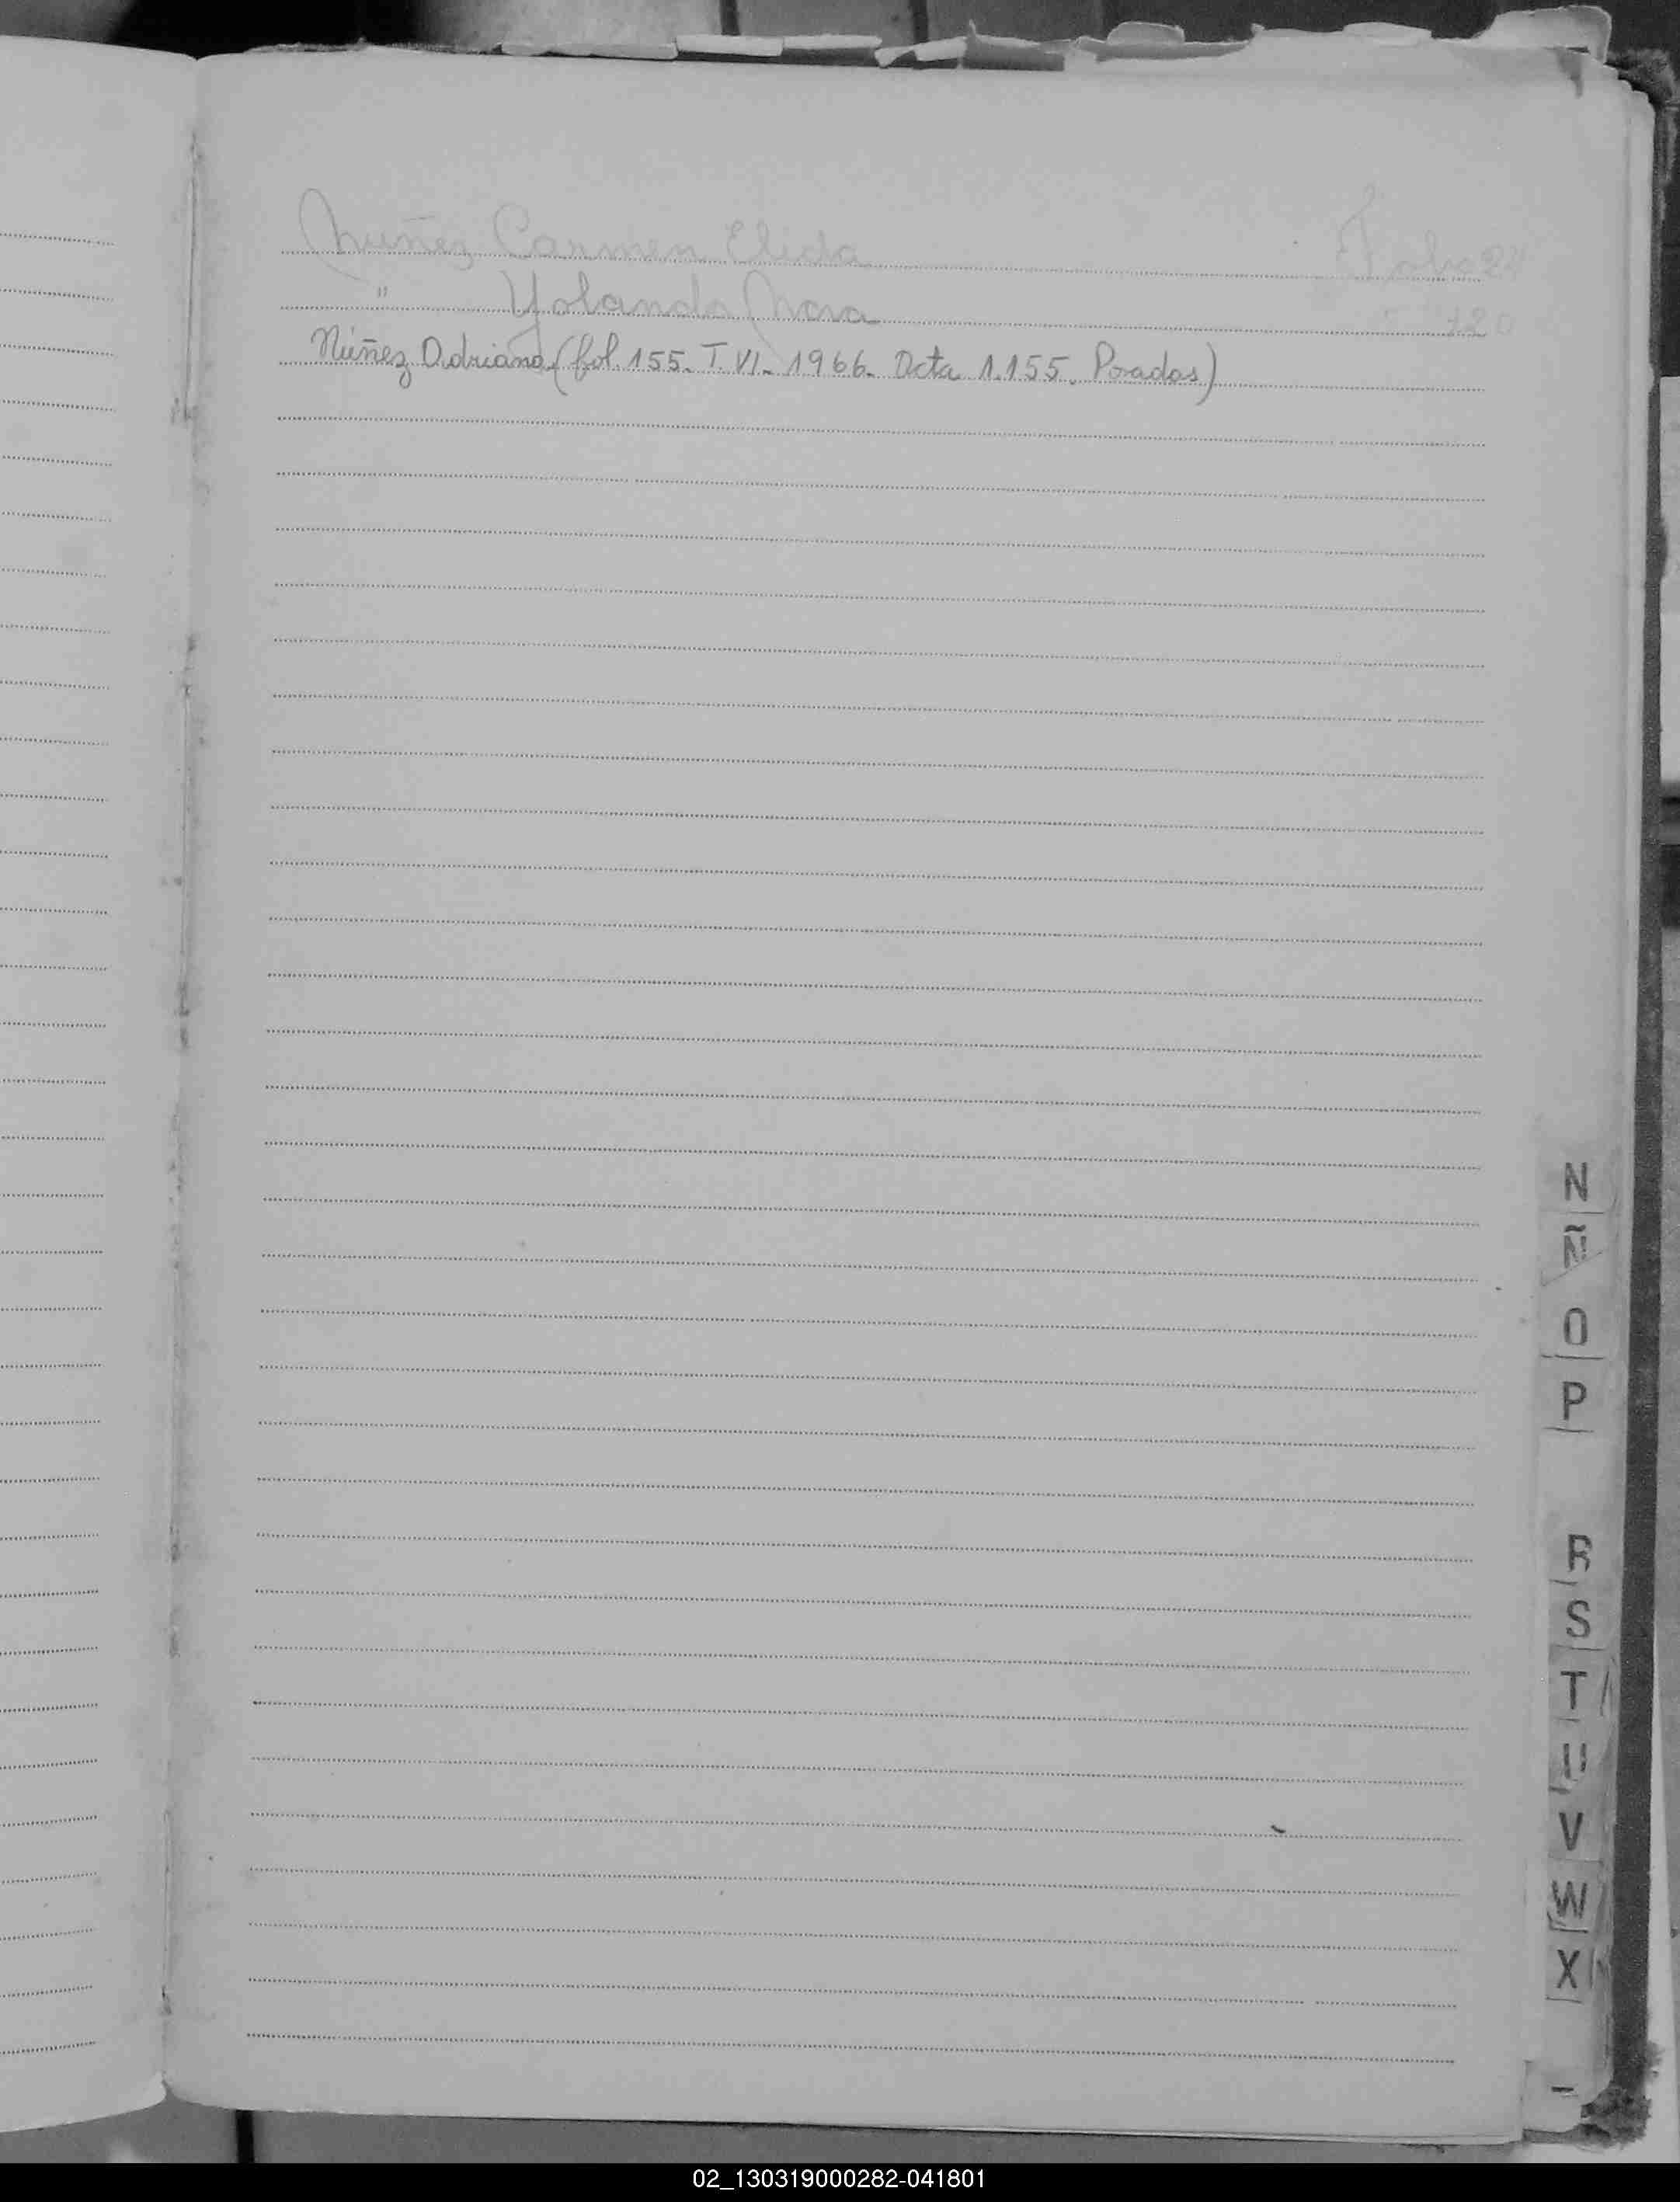 Nuñez Carmen Elida Folio 24
" Yolanda Nora 120
Núñez Adriana (fol. 155. T. VI. 1966. Acta 1.155. Posadas)
N
Ñ
O
P
R
S
T
U
V
W
X
02_130319000282-041801